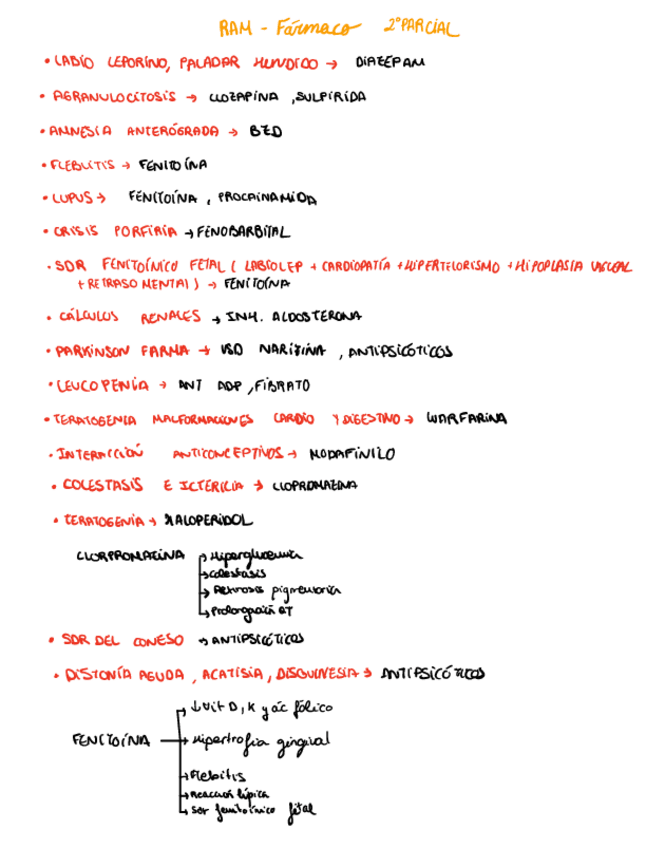 RAM - Fármaco 2ºPARCIAL
• LABIO LEPORINO, PALADAR HENDIDO → DIAZEPAM
• AGRANULOCITOSIS → CLOZAPINA, SULPIRIDA
• AMNESIA ANTERÓGRADA → BZD
• FLEBITIS → FENITOÍNA
• LUPUS → FENITOÍNA, PROCAINAMIDA
• CRISIS PORFIRIA → FENOBARBITAL
• SDR FENITOÍNICO FETAL ( LABIOLEP + CARDIOPATÍA + HIPERTELORISMO + HIPOPLASIA UNGUEAL
+ RETRASO MENTAL) → FENITOÍNA
• CÁLCULOS RENALES → INH. ALDOSTERONA
• PARKINSON FARMA → ANTIPSICÓTICOS
• LEUCOPENIA → ANT ADP, FIBRATO
• TERATOGENIA MALFORMACIONES CARDIO Y DIGESTIVO → WARFARINA
• INTERACCIÓN ANTICONCEPTIVOS → MODAFINILO
• COLESTASIS E ICTERICIA → CLOPROMAZINA
• TERATOGENIA → HALOPERIDOL
CLORPROMAZINA → Hiperglucemia
→ Colestasis
→ Retinosis pigmentaria
→ Prolongación QT
• SDR DEL CONEJO → ANTIPSICÓTICOS
• DISTONÍA AGUDA, ACATISIA, DISQUINESIA → ANTIPSICÓTICOS
→ ↓ Vit D, K y ác fólico
FENITOÍNA → Hipertrofia gingival
→ Flebitis
→ Reacción lúpica
→ Sdr fenitoínico fetal